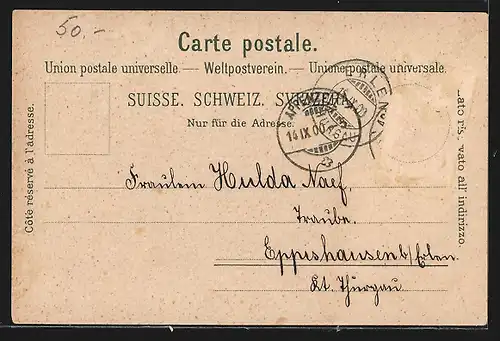 50.-
Carte postale.
Union postale universelle — Weltpostverein. — Unione postale universale.
SUISSE. SCHWEIZ. SVIZZERA.
Nur für die Adresse.
Côté réservé à l'adresse.
lato ris vato all' indirizzo.
APPENZELL
14.IX.00
ERLEN
IX.00
Fraulem Hulda Naef,
Traube.
Eppishausen b/Erlen.
Kt. Thurgau